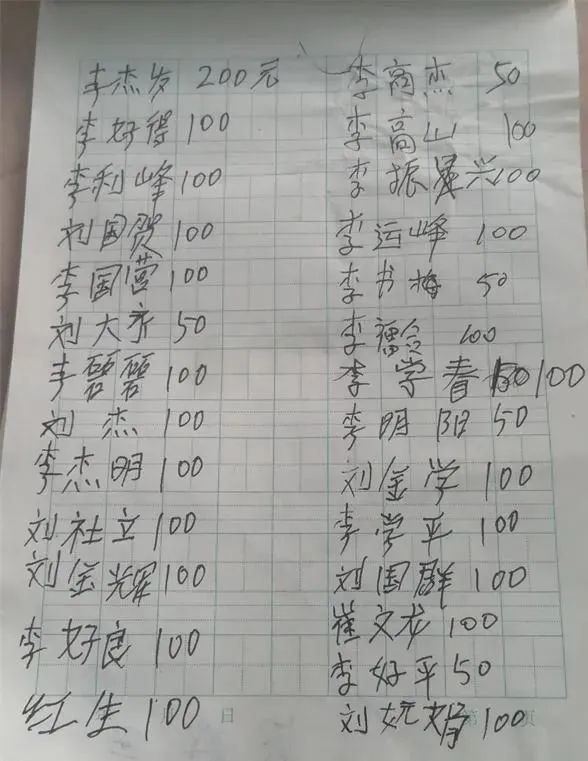 李杰发 200元
李好得 100
李利峰 100
刘国贺 100
李国营 100
刘大齐 50
李碧碧 100
刘杰 100
李杰明 100
刘社立 100
刘金辉 100
李好良 100
红生 100
李高杰 50
李高山 100
李振兴 100
李运峰 100
李书梅 50
李 100
李学春 100
李明阳 50
刘金学 100
李学平 100
刘国群 100
崔文龙 100
李好平 50
刘 100
日